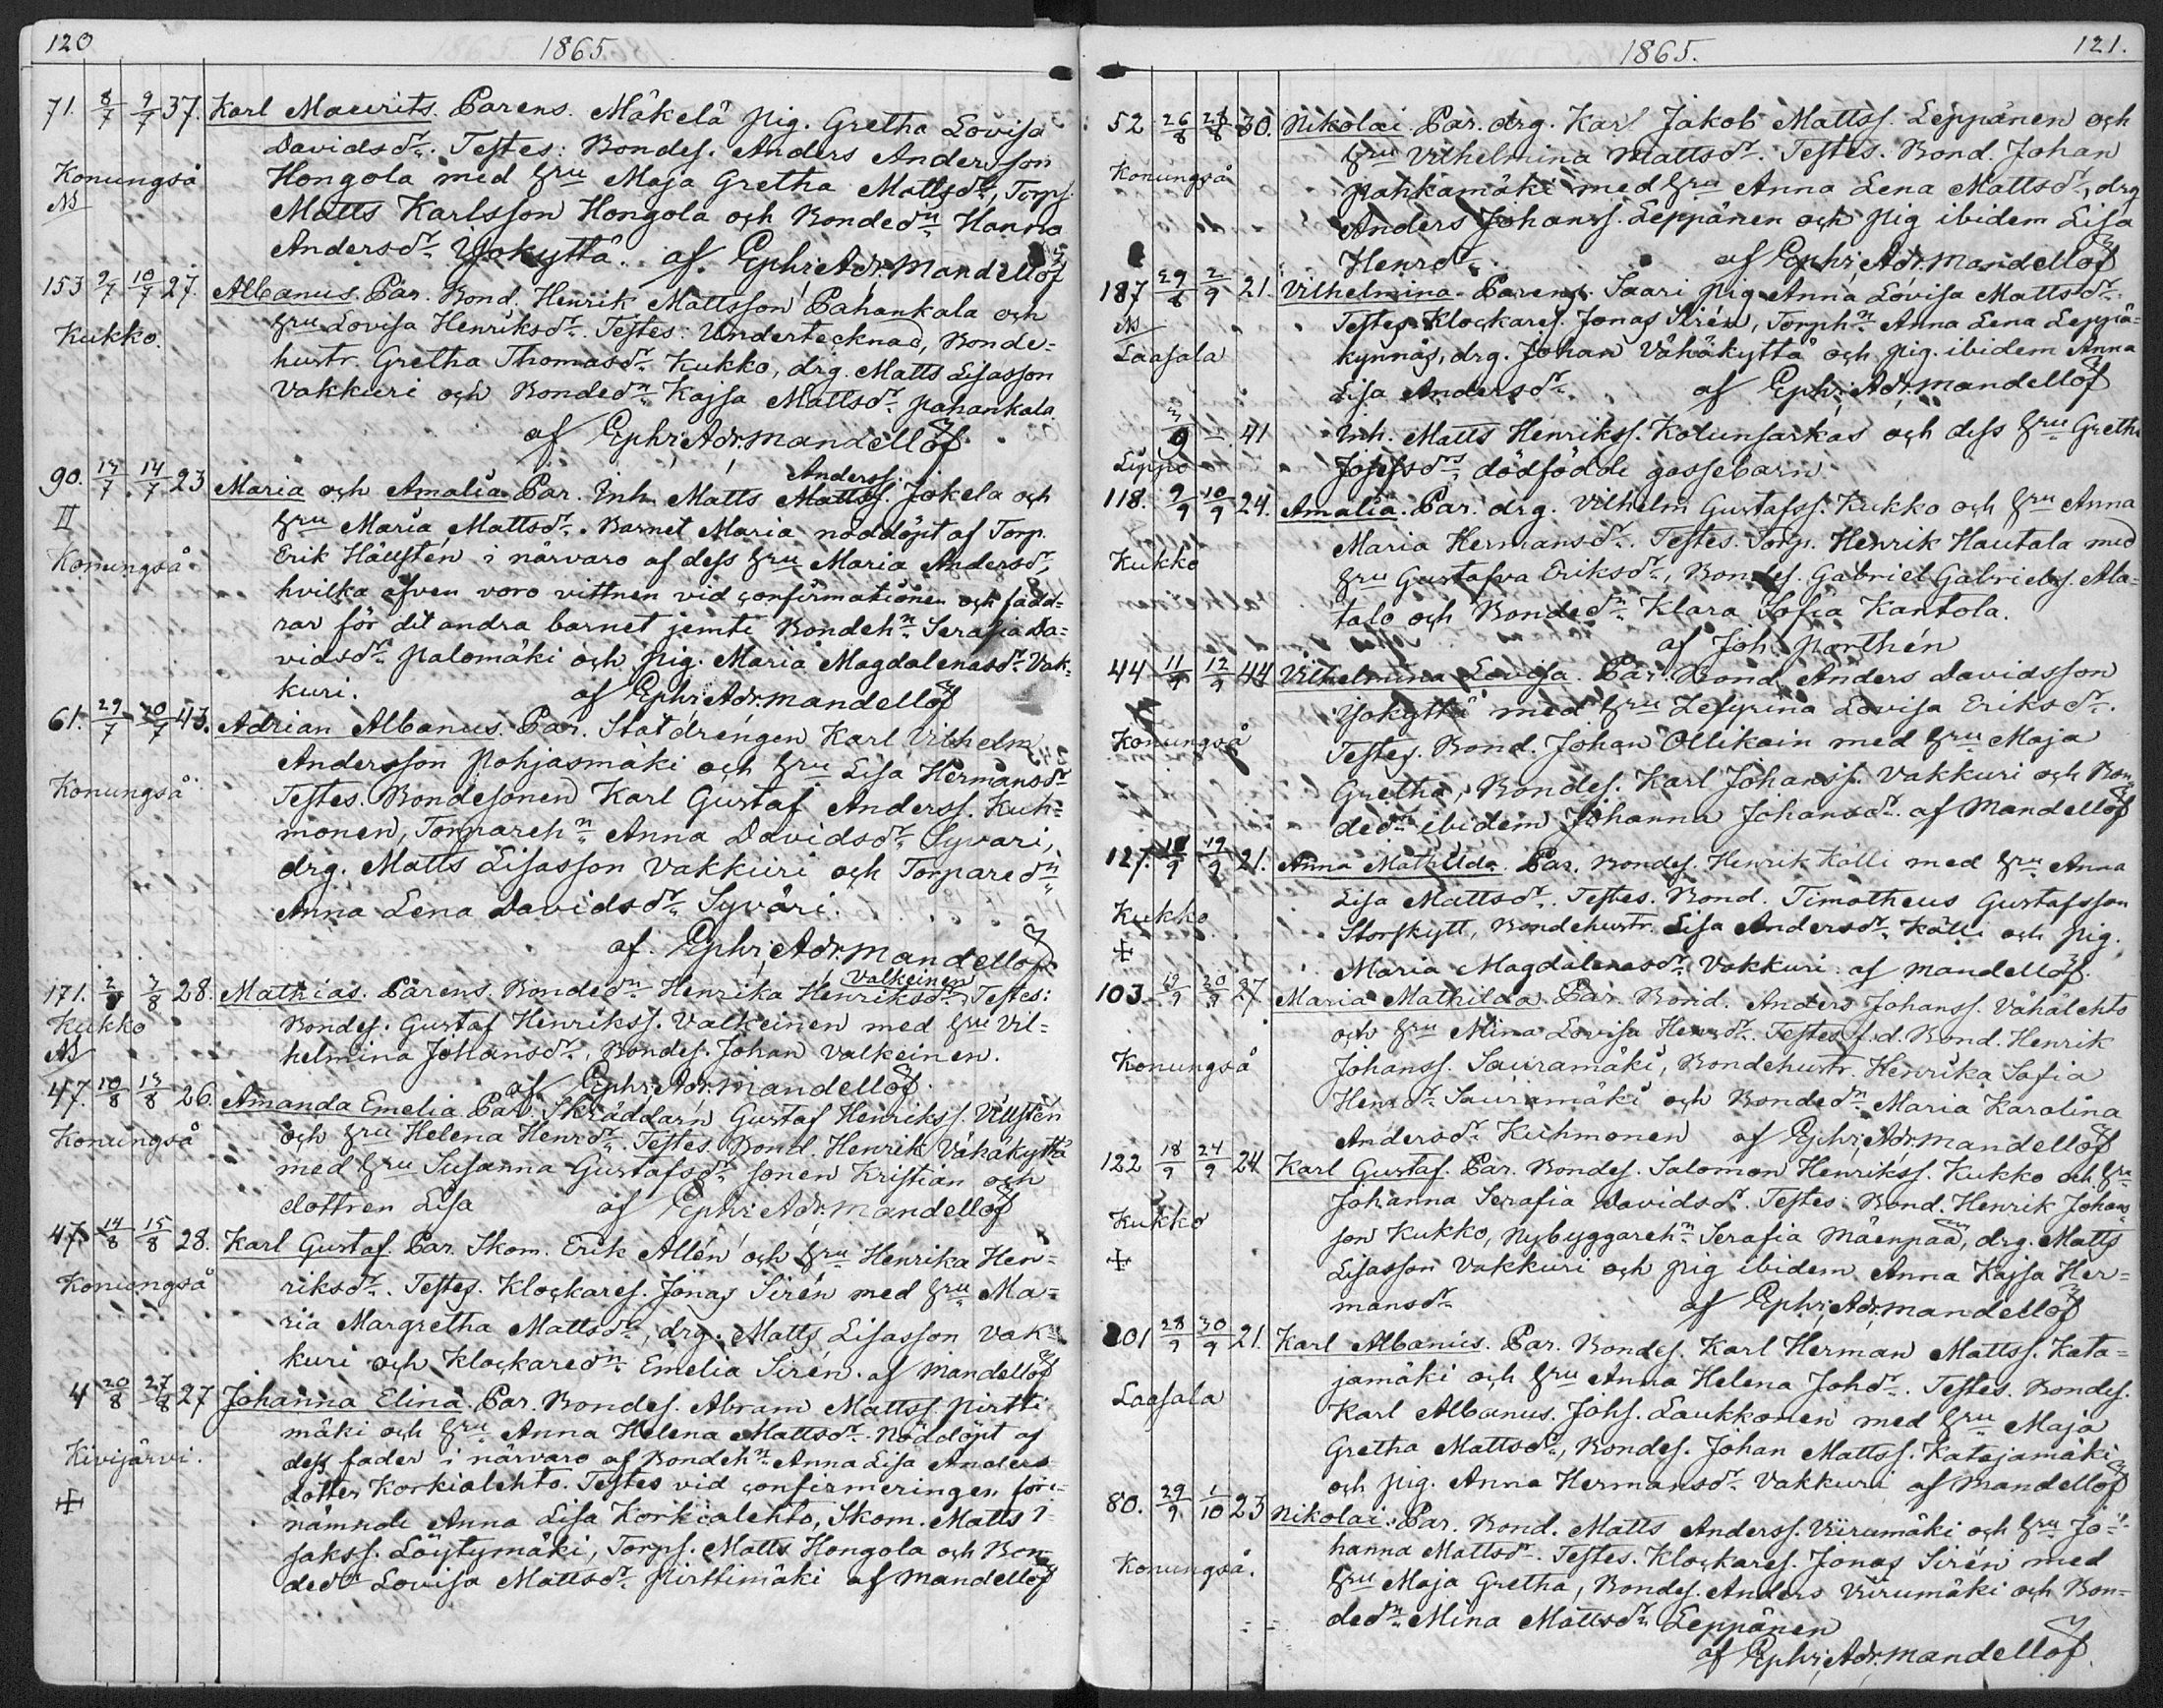 120
1865
71. 8/7 9/7 37. Karl Maurits. Parens. Mäkelä pig. Gretha Lovisa
Davidsdr. Testes: Bondes. Anders Andersson
Konungså Hongola med hru Maja Gretha Mattsdr, Torps.
Matts Karlsson Hongola och Bondedn Hanna
Andersdr Yjokyttä. af Ephr. Adr. Mandellöf
153 9/7 10/7 27. Albanus. Par. Bond. Henrik Mattsson Pahankala och
hru Lovisa Henriksdr. Testes: Undertecknad, Bonde=
Kukko. hustr. Gretha Thomasdr Kukko, drg. Matts Lisasson
Vakkuri och Bondedn Kajsa Mattsdr Pahankala.
af Ephr. Adr. Mandellöf
Anderss.
90. 14/7 23 Maria och Amalia Par. Inh. Matts Mattss. Jokela och
II hru Maria Mattsdr. Barnet Maria nöddöpt af Torp.
Konungså Erik Hällstén i närvaro af dess hru Maria Andersdr,
hvilka äfven voro vittnen vid confirmationen och fadd=
rar för det andra barnet jemte Bondehn Serafia Da=
vidsdr Palomäki och pig. Maria Magdalenasdr Vak=
kuri. af Ephr. Adr. Mandellöf
61. 29/7 30/7 43. Adrian Albanus. Par. Statdrengen Karl Vilhelm
Andersson Pohjasmäki och hru Lisa Hermansdr
Konungså Testes. Bondesonen Karl Gustaf Anderss. Kuh=
monen, Torpareh Anna Davidsdr Syväri,
drg. Matts Lisasson Vakkuri och Torparedn
Anna Lena Davidsdr Syväri.
af Ephr. Adr. Mandellöf
Valkeinen
171. 2/8 3/8 28. Mathias. Parens. Bondedn Henrika Henriksdr Testes:
Kukko Bondes. Gustaf Henrikss. Valkeinen med hru Vil=
helmina Johansdr, Bondes. Johan Valkeinen.
af Ephr. Adr. Mandellöf.
47. 10/8 13/8 26. Amanda Emelia. Par. Skräddarn Gustaf Henrikss. Villstén
Konungså och hru Helena Henrdr. Testes. Bond. Henrik Vähäkyttä
med hru Susanna Gustafsdr sonen Kristian och
dottren Lisa af Ephr. Adr. Mandellöf
47. 14/8 15/8 28. Karl Gustaf. Par. Skom. Erik Allén och hru Henrika Hen=
Konungså riksdr. Testes. Klockares. Jonas Sirén med hru Ma=
ria Margretha Mattsdr, drg. Matts Lisasson Vak=
kuri och Klockaredn Emelia Sirén. af Mandellöf
4 20/8 27/8 27 Johanna Elina. Par. Bondes. Abram Mattss. Pirtti
mäki och hru Anna Helena Mattsdr. Nöddöpt af
Kivijärvi. dess fader i närvaro af Bondehn Anna Lisa Anders
dotter Korkialehto. Testes vid confirmeringen före=
nämnde Anna Lisa Korkialehto, Skom. Matts I=
saks. Löytymäki, Torps. Matts Hongola och Bon=
dedn Lovisa Mattsdr Pirttimäki af Mandellöf
1865.
121.
52 26/8 30. Nikolai. Par. drg. Karl Jakob Mattss. Leppänen och
hru Vilhelmina Mattsdr. Testes. Bond. Johan
Konungså Pahkamäki med hru Anna Lena Mattsdr, drg
Anders Johanss. Leppänen och pig ibidem Lisa
Henrdr. af Ephr. Adr. Mandellöf
187 29/8 2/9 21. Vilhelmina. Parens. Saari pig Anna Lovisa Mattsdr.
Testes. Klockares. Jonas Sirén, Torphn Anna Lena Leppä=
Laasala kynnäs, drg. Johan Vähäkyttä och pig. ibidem Anna
Lisa Andersdr. af Ephr. Adr. Mandellöf
3/9 – 41 Inh. Matts Henrikss. Kolunsarkas och dess hru Gretha
Leppo Josefsdrs dödfödde gossebarn
118. 9/9 10/9 24. Amalia. Par. drg. Vilhelm Gustafss. Kukko och hru Anna
Maria Hermansdr. Testes. Torp. Henrik Hautala med
Kukko hru Gustafva Eriksdr, Bondes. Gabriel Gabrielss. Ala=
talo och Bondedn Klara Sofia Kantola.
af Joh. Porthén
44 11/9 12/9 44 Vilhelmina Lovisa. Par. Bond. Anders Davidsson
Yjokyttä med hru Zefyrina Lovisa Eriksdr.
Konungså Testes. Bond. Johan Ollikain med hru Maja
Gretha, Bondes. Karl Johanss. Vakkuri och Bon=
dedn ibidem Johanna Johansdr. af Mandellöf
127. 18/9 19/9 21. Anna Mathilda. Par. Bondes. Henrik Källi med hru Anna
Lisa Mattsdr. Testes. Bond. Timotheus Gustafsson
Kukko Storskytt, Bondehustr. Lisa Andersdr Källi och pig.
Maria Magdalenasdr Vakkuri af Mandellöf.
103. 19/9 20/9 37 Maria Mathilda Par. Bond. Anders Johanss. Vähälehto
och hru Mina Lovisa Henrsdr. Testes f.d. Bond. Henrik
Konungså Johanss. Sauramäki, Bondehustr. Henrika Sofia
Henrdr Sauramäki och Bondedn Maria Karolina
Andersdr Kuhmonen af Ephr. Adr. Mandellöf
122 18/9 24/9 24 Karl Gustaf. Par. Bondes. Salomon Henrikss. Kukko och hru
Johanna Serafia Davidsdr. Testes: Bond. Henrik Johans
Kukko son Kukko, Nybyggarehn Serafia Mäenpää, drg. Matts
Lisasson Vakkuri och pig ibidem Anna Kajsa Her=
mansdr af Ephr. Adr. Mandellöf
201 28/9 30/9 21. Karl Albanus. Par. Bondes. Karl Herman Mattss. Kata=
jamäki och hru Anna Helena Johdr. Testes. Bondes.
Laasala Karl Albanus. Johs. Laukkonen med hru Maja
Gretha Mattsdr, Bondes. Johan Mattss. Katajamäki
och pig. Anna Hermansdr Vakkuri af Mandellöf
80. 29/9 1/10 23 Nikolai. Par. Bond. Matts Anderss. Viirumäki och hru Jo=
hanna Mattsdr. Testes. Klockares. Jonas Sirén med
Konungså. hru Maja Gretha, Bondes. Anders Viirumäki och Bon=
dedn Mina Mattsdr Leppänen
af Ephr. Adr. Mandellöf.